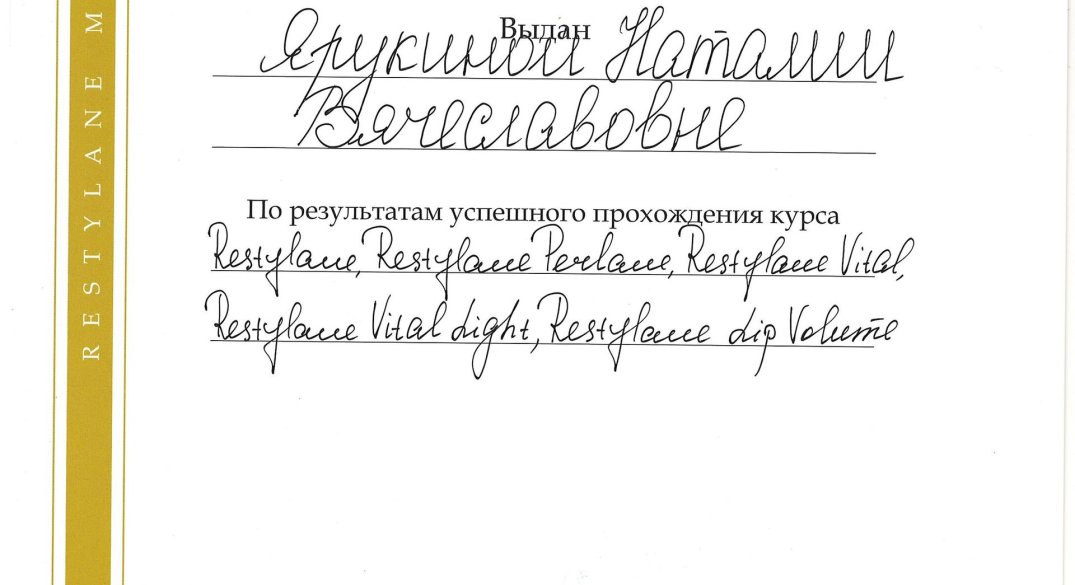 RESTYLANE M
Выдан
Ярукиной Наталии
Вячеславовне
По результатам успешного прохождения курса
Restylane, Restylane Perlane, Restylane Vital,
Restylane Vital Light, Restylane Lip Volume